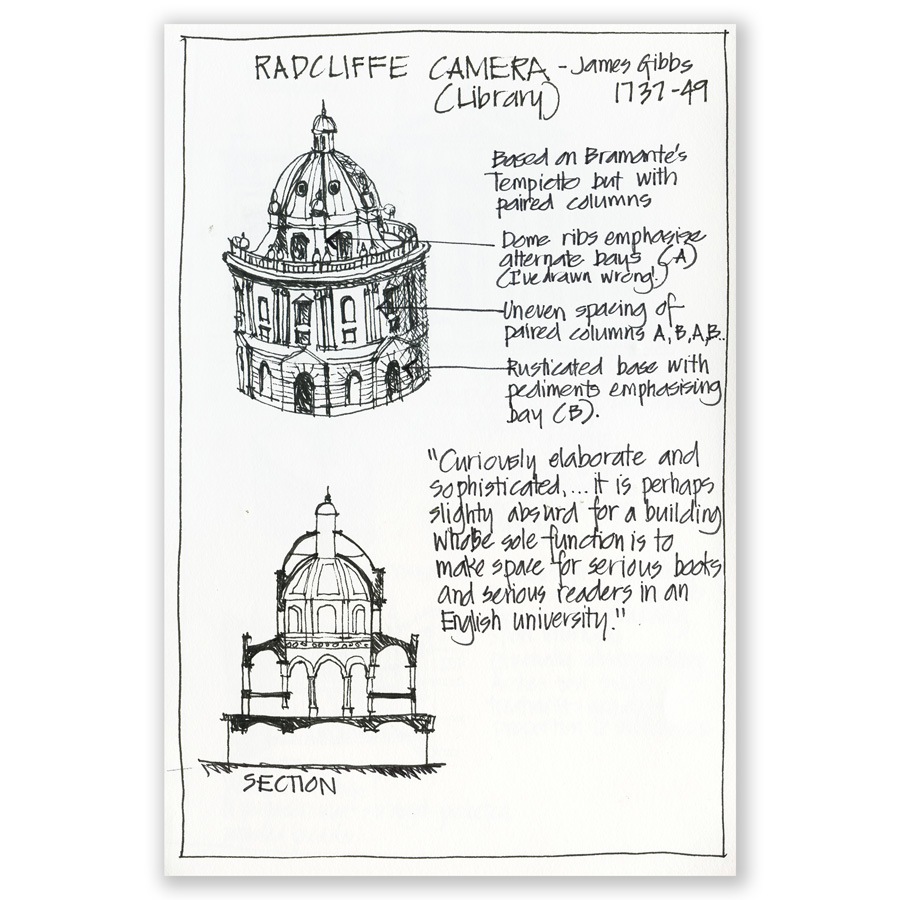 RADCLIFFE CAMERA - James Gibbs
(Library) 1737-49
Based on Bramante's
Tempietto but with
paired columns
Dome ribs emphasize
alternate bays (A)
(I've drawn wrong!)
Uneven spacing of
paired columns A,B,A,B..
Rusticated base with
pediments emphasising
bay (B).
"Curiously elaborate and
sophisticated,... it is perhaps
slighty absurd for a building
whose sole function is to
make space for serious books
and serious readers in an
English university."
SECTION